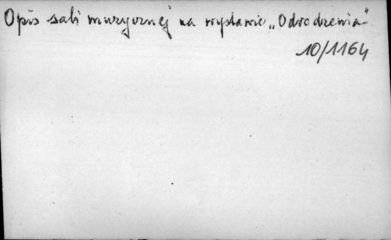 Opis sali muzycznej na wystawie „Odrodzenia"
10/1164